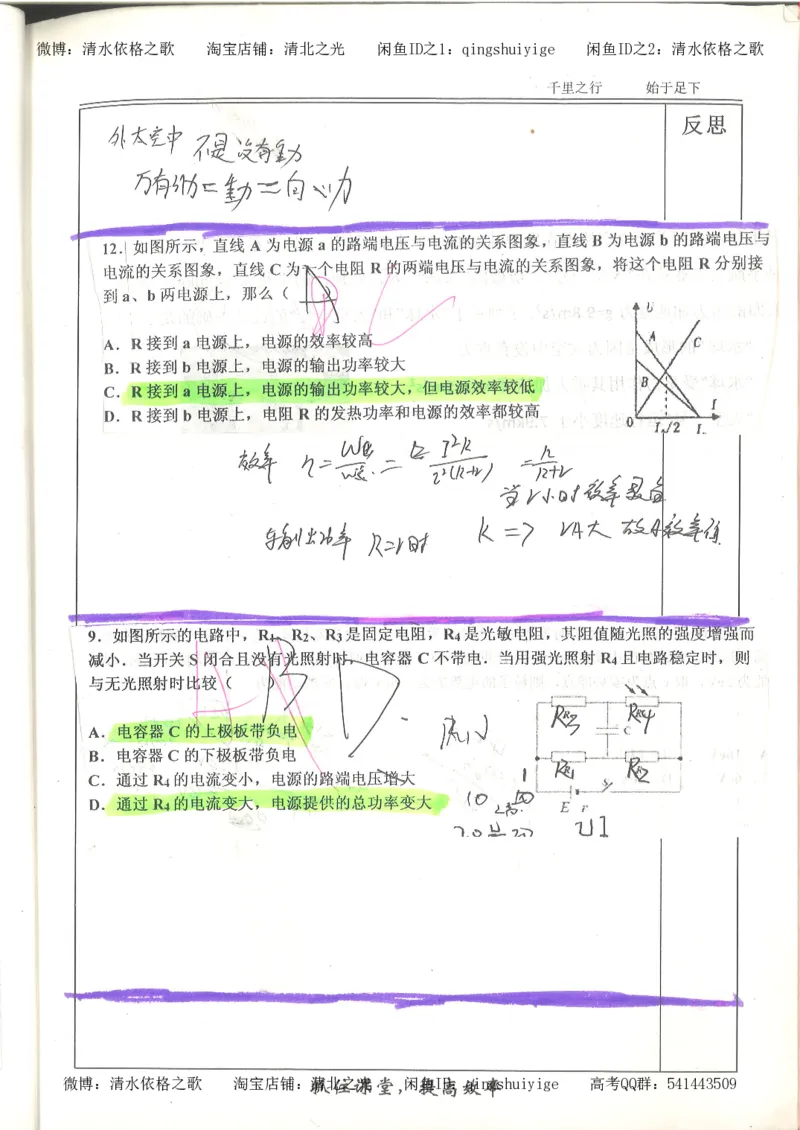 微博：清水依格之歌 淘宝店铺：清北之光 闲鱼ID之1：qingshuiyige 闲鱼ID之2：清水依格之歌
千里之行 始于足下
反思
外太空中 不是没有重力
万有引力=重力=向心力
12．如图所示，直线 A 为电源 a 的路端电压与电流的关系图象，直线 B 为电源 b 的路端电压与
电流的关系图象，直线 C 为一个电阻 R 的两端电压与电流的关系图象，将这个电阻 R 分别接
到 a、b 两电源上，那么（
A．R 接到 a 电源上，电源的效率较高
B．R 接到 b 电源上，电源的输出功率较大
C．R 接到 a 电源上，电源的输出功率较大，但电源效率较低
D．R 接到 b 电源上，电阻 R 的发热功率和电源的效率都较高
U
A
C
B
I
0
效率
当r小时效率最高
输出功率 R=r时 k => rA大 故A效率低
9．如图所示的电路中，R₁、R₂、R₃是固定电阻，R₄是光敏电阻，其阻值随光照的强度增强而
减小．当开关 S 闭合且没有光照射时，电容器 C 不带电．当用强光照射 R₄且电路稳定时，则
与无光照射时比较（ ）
BD
A．电容器 C 的上极板带负电
B．电容器 C 的下极板带负电
C．通过 R₄的电流变小，电源的路端电压增大
D．通过 R₄的电流变大，电源提供的总功率变大
R3
R4
C
R1
R2
S
E r
UI
微博：清水依格之歌 淘宝店铺：清北之光 闲鱼ID：qingshuiyige 高考QQ群：541443509
抓住课堂，提高效率